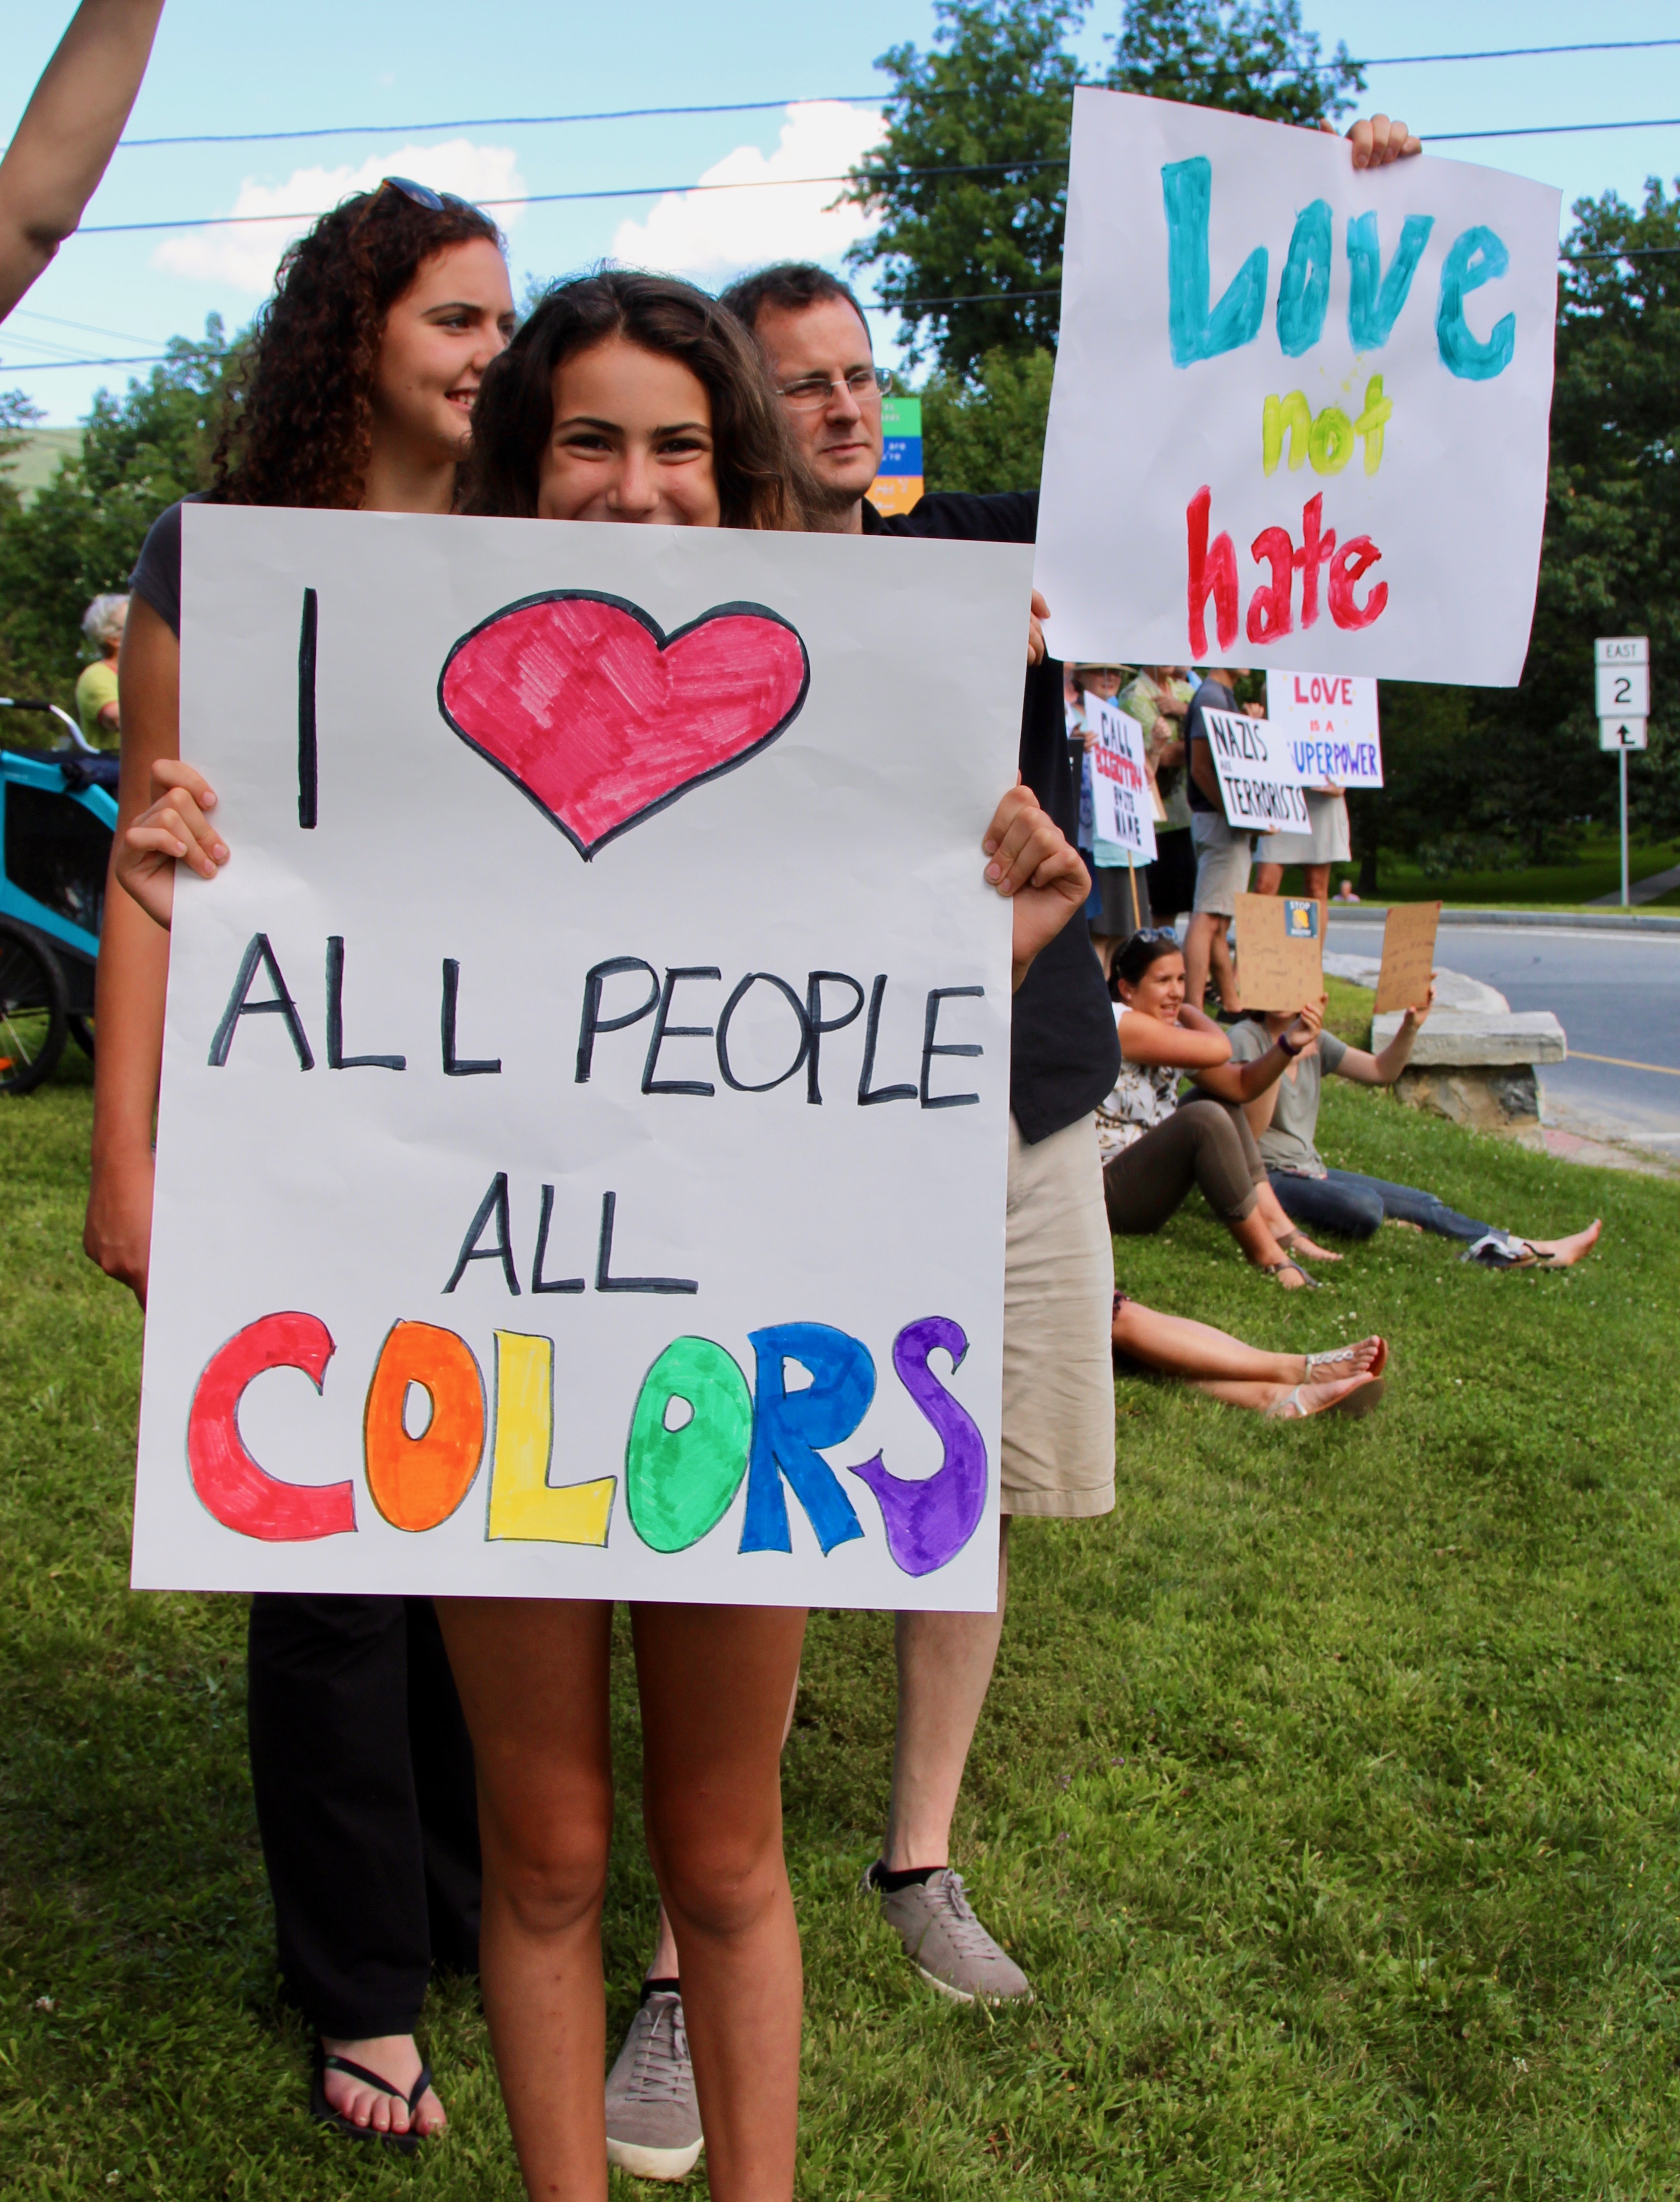 I
ALL PEOPLE
ALL
COLORS
Love
not
hate
CALL
BIGOTRY
BY ITS
NAME
NAZIS
ARE
TERRORISTS
LOVE
IS A
UPERPOWER
EAST
2
STOP
are